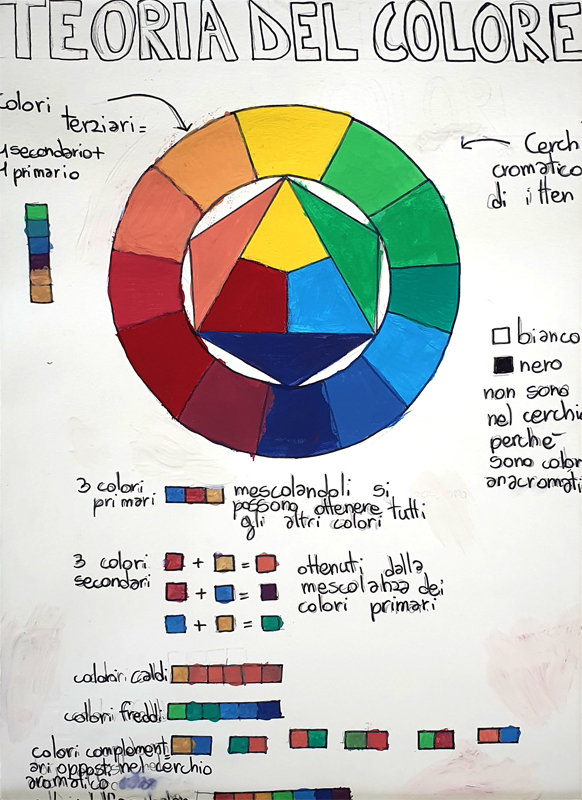 TEORIA DEL COLORE
colori
terziari=
1 secondario+
1 primario
Cerch
cromatico
di itten
bianco
nero
non sono
nel cerchi
perchè
sono color
anacromati
3 colori
primari
mescolandoli si
possono ottenere tutti
gli altri colori
3 colori
secondari
+ =
+ =
+ =
ottenuti dalla
mescolanza dei
colori primari
colori caldi
colori freddi
colori complement
ari opposti nel cerchio
cromatico